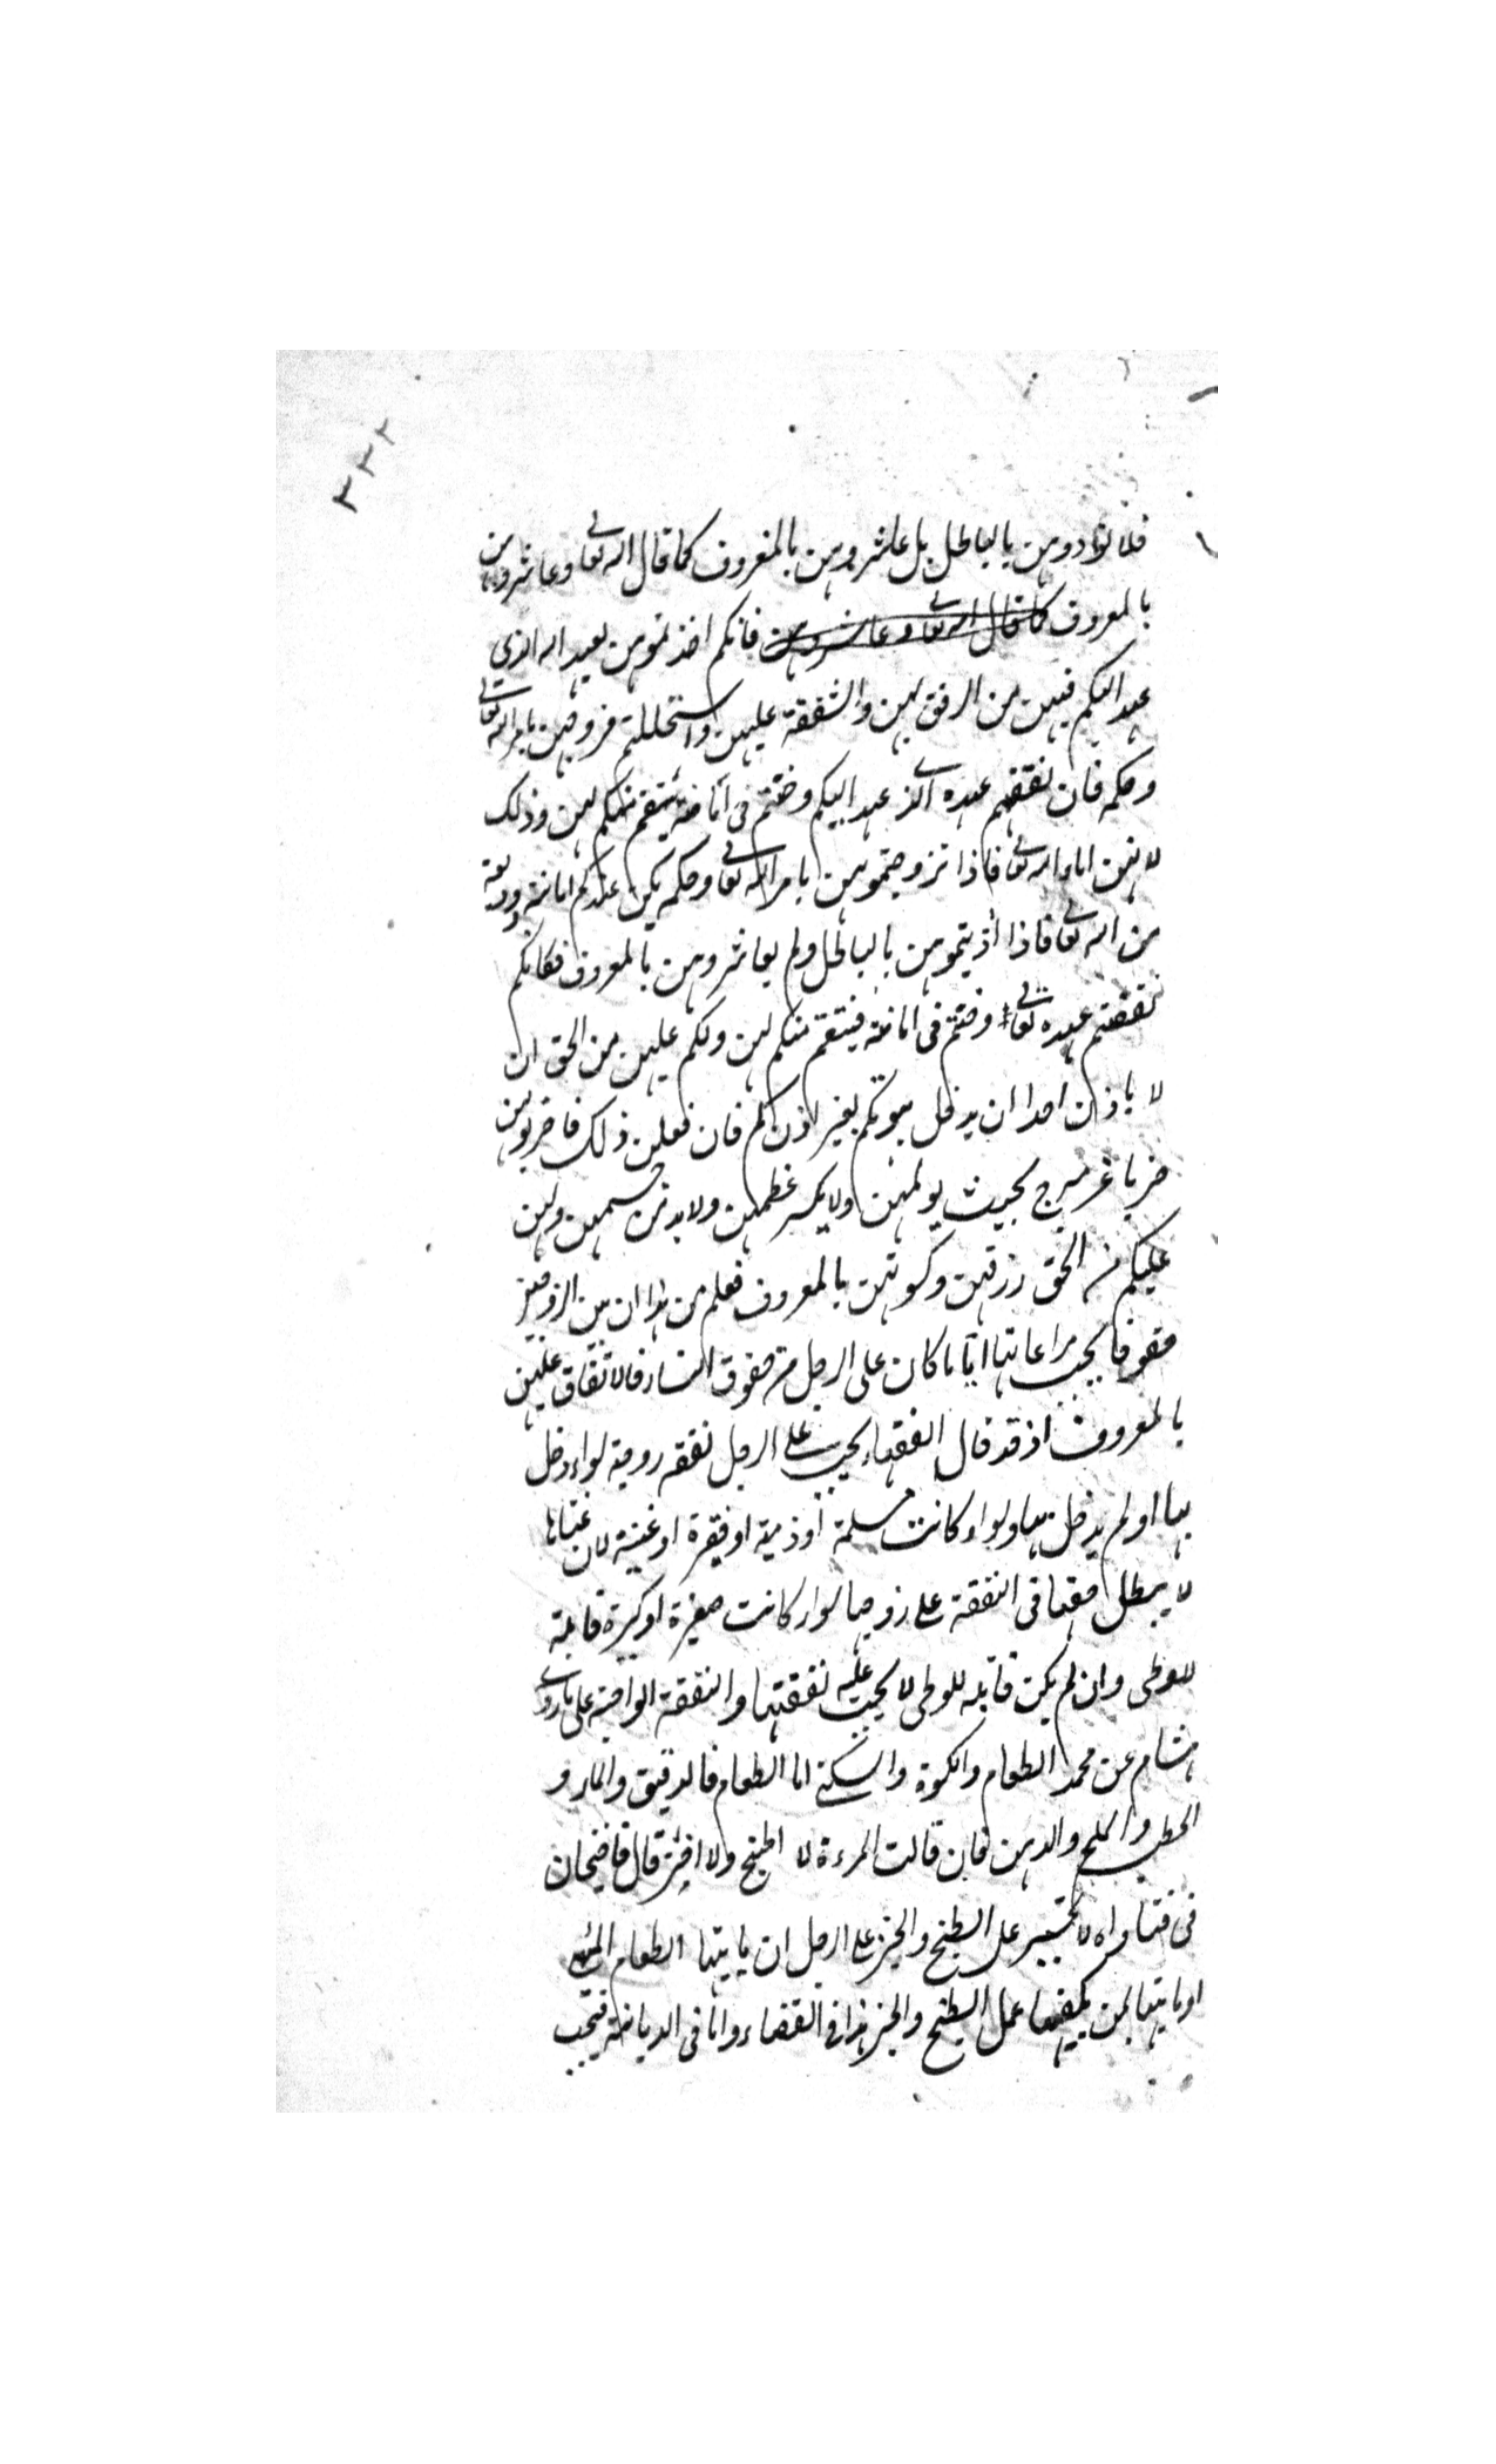 ٣٣٢
فلا تؤذوهن بالباطل بل عاشروهن بالمعروف كما قال الله تعالى وعاشروهن
بالمعروف كما قال الله تعالى وعاشروهن فانكم اخذتموهن بعهد الله الذي
عهد اليكم فيهن من الرفق لهن والشفقة عليهن واستحللتم فروجهن بامر الله تعالى
وحكمه فان نقضتم عهده الذي عهد اليكم وخنتم في امانته ينتقم منكم لهن وذلك
لانهن اماء الله تعالى فاذا تزوجتموهن بامر الله تعالى وحكمه يكن عندكم امانة وديعة
من الله تعالى فاذا أذيتموهن بالباطل ولم يعاشروهن بالمعروف فكانكم
نقضتم عهده تعالى وخنتم في امانته فينتقم منكم لهن ولكم عليهن من الحق ان
لا ياذن احدا ان يدخل بيوتكم بغير اذنكم فان فعلن ذلك فاضربوهن
ضربا غير مبرح بحيث يولمهن ولا يكسر عظمهن ولا يدمي جسمهن ولهن
عليكم من الحق رزقهن وكسوتهن بالمعروف فعلم من هذا ان بين الزوجين
حقوقا يجب مراعاتها اما ما كان على الرجل من حقوق النساء فالانفاق عليهن
بالمعروف اذ قد قال الفقهاء يجب على الرجل نفقة زوجته سواء دخل
بها او لم يدخل بها وسواء كانت مسلمة أو ذمية او فقيرة او غنية لان غناها
لا يبطل حقها في النفقة على زوجها سواء كانت صغيرة او كبيرة قابلة
للوطى وان لم يكن قابلة للوطى لا يجب عليه نفقتها والنفقة الواجبة على ما روى
هشام عن محمد الطعام والكسوة والسكنى اما الطعام فالدقيق والماء و
الحطب والملح والدهن فان قالت المرءة لا اطبخ ولا اخبز قال قاضيخان
في فتاواه لا تجبر على الطبخ والخبز على الرجل ان ياتيها الطعام المهيا
او ياتيها بمن يكفيها عمل الطبخ والخبز هذا في القضاء واما في الديانة فيجب